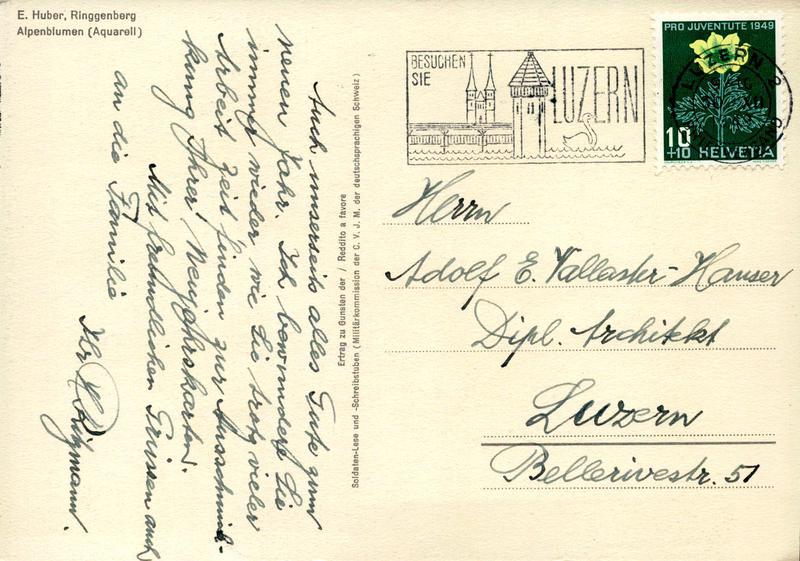 E. Huber, Ringgenberg
Alpenblumen (Aquarell)
Auch unserseits alles Gute zum
neuen Jahr. Ich bewundere Sie
immer wieder wie Sie trotz vieler
Arbeit Zeit finden zur Ausschmük-
kung Ihrer Neujahrskarten.
Mit freundlichen Grüssen auch
an die Familie
Ihr
Ertrag zu Gunsten der / Reddito a favore
Soldaten-Lese und -Schreibstuben (Militärkommission der C. V. J. M. der deutschsprachigen Schweiz)
BESUCHEN
SIE
LUZERN
PRO JUVENTUTE 1949
LUZERN 2
10
+10 HELVETIA
Herrn
Adolf E. Vallaster-Hauser
Dipl. Architekt
Luzern
Bellerivestr. 51